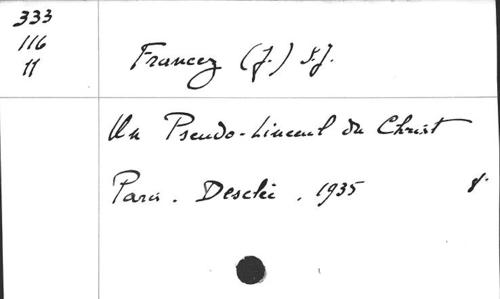 333
116
11
Francez (J.) S.J.
Un Pseudo-Linceul du Christ
Paris. Desclée, 1935